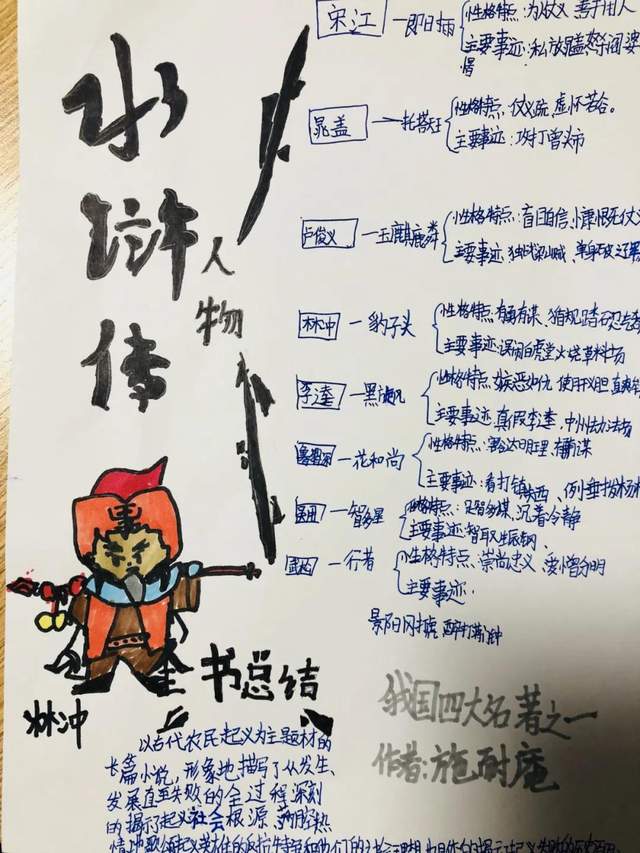 水浒传
人物
宋江 — 即日雨
性格特点:为仗义 善于用人
主要事迹:私放晁盖 怒阎婆
惜
晁盖 — 托塔天王
性格特点,仗义疏,虚怀若谷。
主要事迹:攻打曾头市
卢俊义 — 玉麒麟
性格特点:盲目自信、慓悍无仗义
主要事迹:独战梁山贼、单身破辽寨
林冲 — 豹子头
性格特点:有勇有谋、循规蹈矩
主要事迹:误闯白虎堂 火烧草料场
李逵 — 黑旋风
性格特点,嫉恶如仇 使用义胆
主要事迹,真假李逵,
花和尚
性格特点:豁达明理、有勇谋
主要事迹:拳打镇关西、倒垂拔杨柳
吴用 — 智多星
性格特点:足智多谋、沉着冷静
主要事迹:智取生辰纲、
武松 — 行者
性格特点,崇尚忠义、爱憎分明
主要事迹:
景阳冈打虎 醉打蒋门神
林冲
全书总结
以古代农民起义为主题材的
长篇小说,形象地描写了从发生、
发展直至失败的全过程深刻
的揭示了起义社会根源,满腔热
情地歌颂起义英雄的反抗
我国四大名著之一
作者:施耐庵